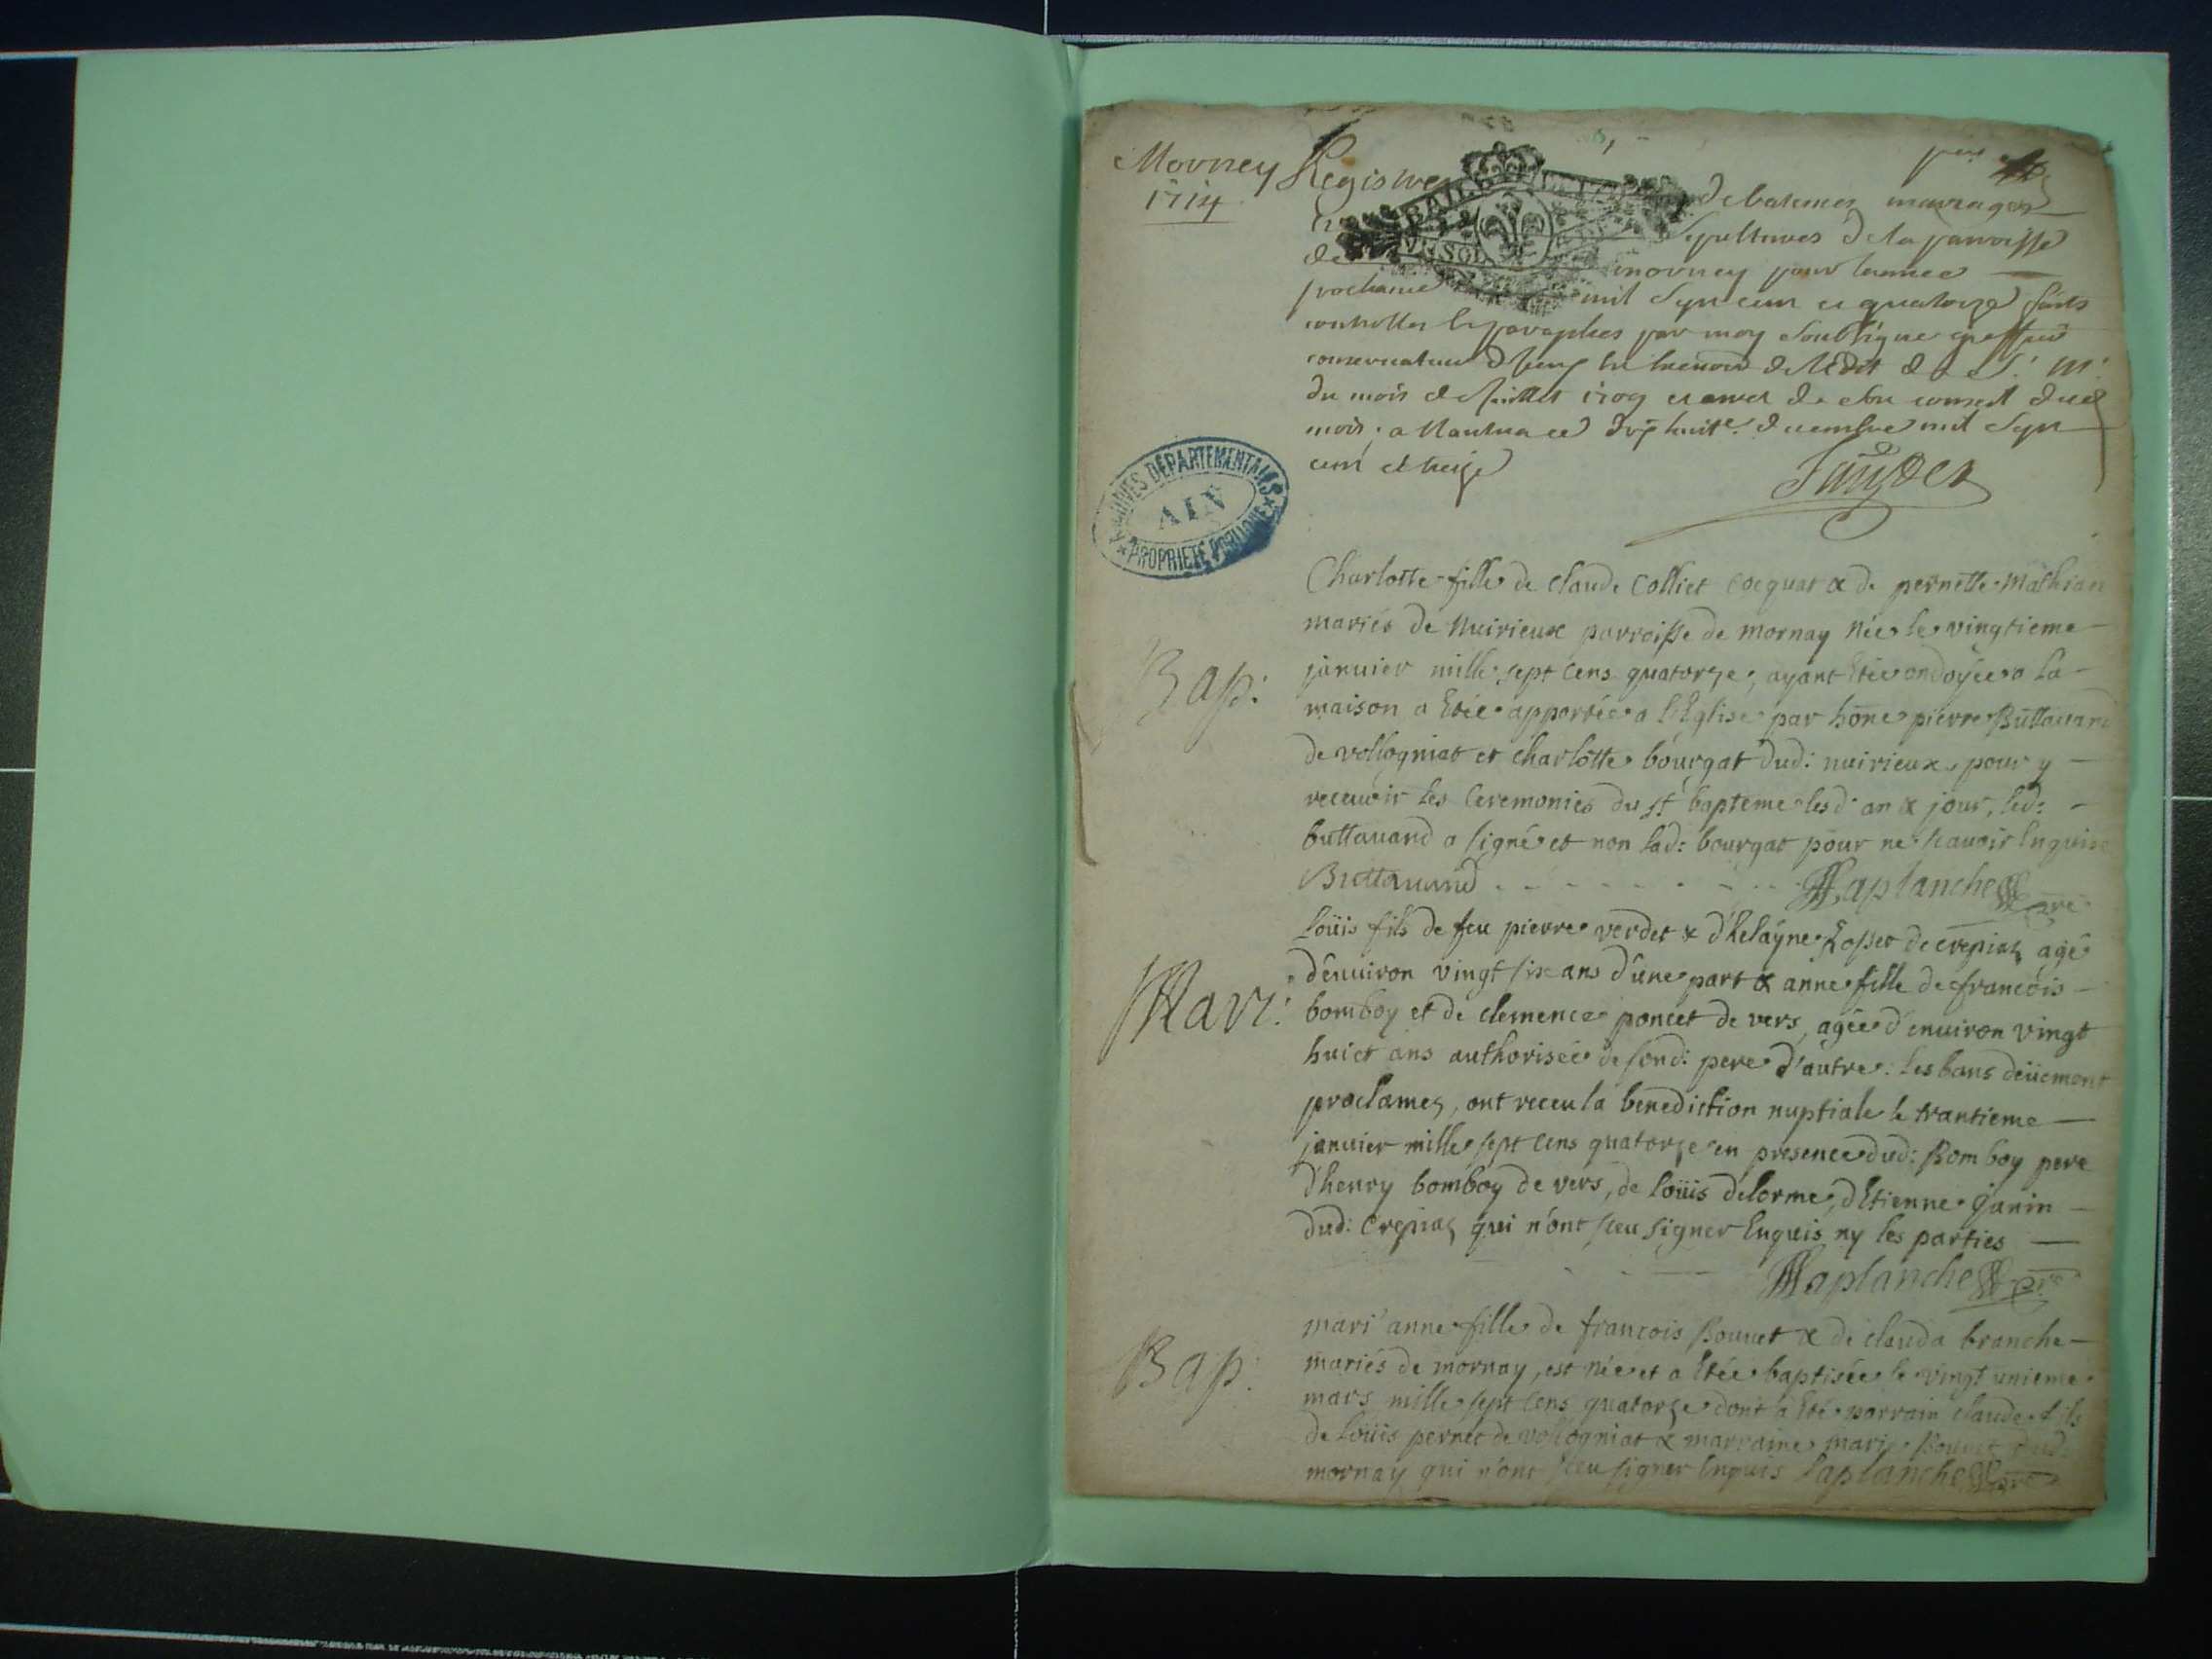 Mornay
1714
Registre de batemes mariages
Sepultures de la parroisse
de mornay pour lannee
prochaine mil sept cent et quatorze
par moy soubsigné greffier
conservateur de l'Edit de S. M.
du mois de juillet 1709 et de son conseil dud
mois, a Nantua ce dix huite decembre mil sept
cent et treize
BAILL
SOL
ARCHIVES DEPARTEMENTALES
AIN
PROPRIETE PUBLIQUE
Bap:
Charlotte fille de claude Colliet cocquat & de pernette Mathieu
mariés de Nuirieux parroisse de mornay née le vingtieme
janvier mille sept cens quatorze, ayant Etée ondoyée a la
maison a Etée apportée a l'Eglise par hone pierre Buttavand
de vollogniat et charlotte bourgat dud: nuirieux pour y
recevoir les Ceremonies du st bapteme lesd: an & jour, led:
buttavand a signé et non lad: bourgat pour ne scavoir Enquise
Buttavand Laplanche
Mari:
loüis fils de feu pierre verdet & d'helayne de crepiaz agé
d'environ vingt six ans d'une part & anne fille de francois
bomboy et de clemence poncet de vers, agée d'environ vingt
huict ans authorisée de sond: pere d'autre. les bans deüement
proclamez, ont receu la benediction nuptiale le trantieme
janvier mille sept cens quatorze en presence dud: Bomboy pere
d'henry bomboy de vers, de loüis delorme, d'Etienne janin
dud: crepiaz qui n'ont sceu signer Enquis ny les parties
Laplanche
Bap:
mari anne fille de francois Bouvet & de clauda branche
mariés de mornay, est née et a Etée baptisée le vingt unieme
mars mille sept cens quatorze dont a Eté parrain claude fils
de loüis pernet de vollogniat & marraine marie Bouvet dud:
mornay qui n'ont sceu signer Enquis Laplanche